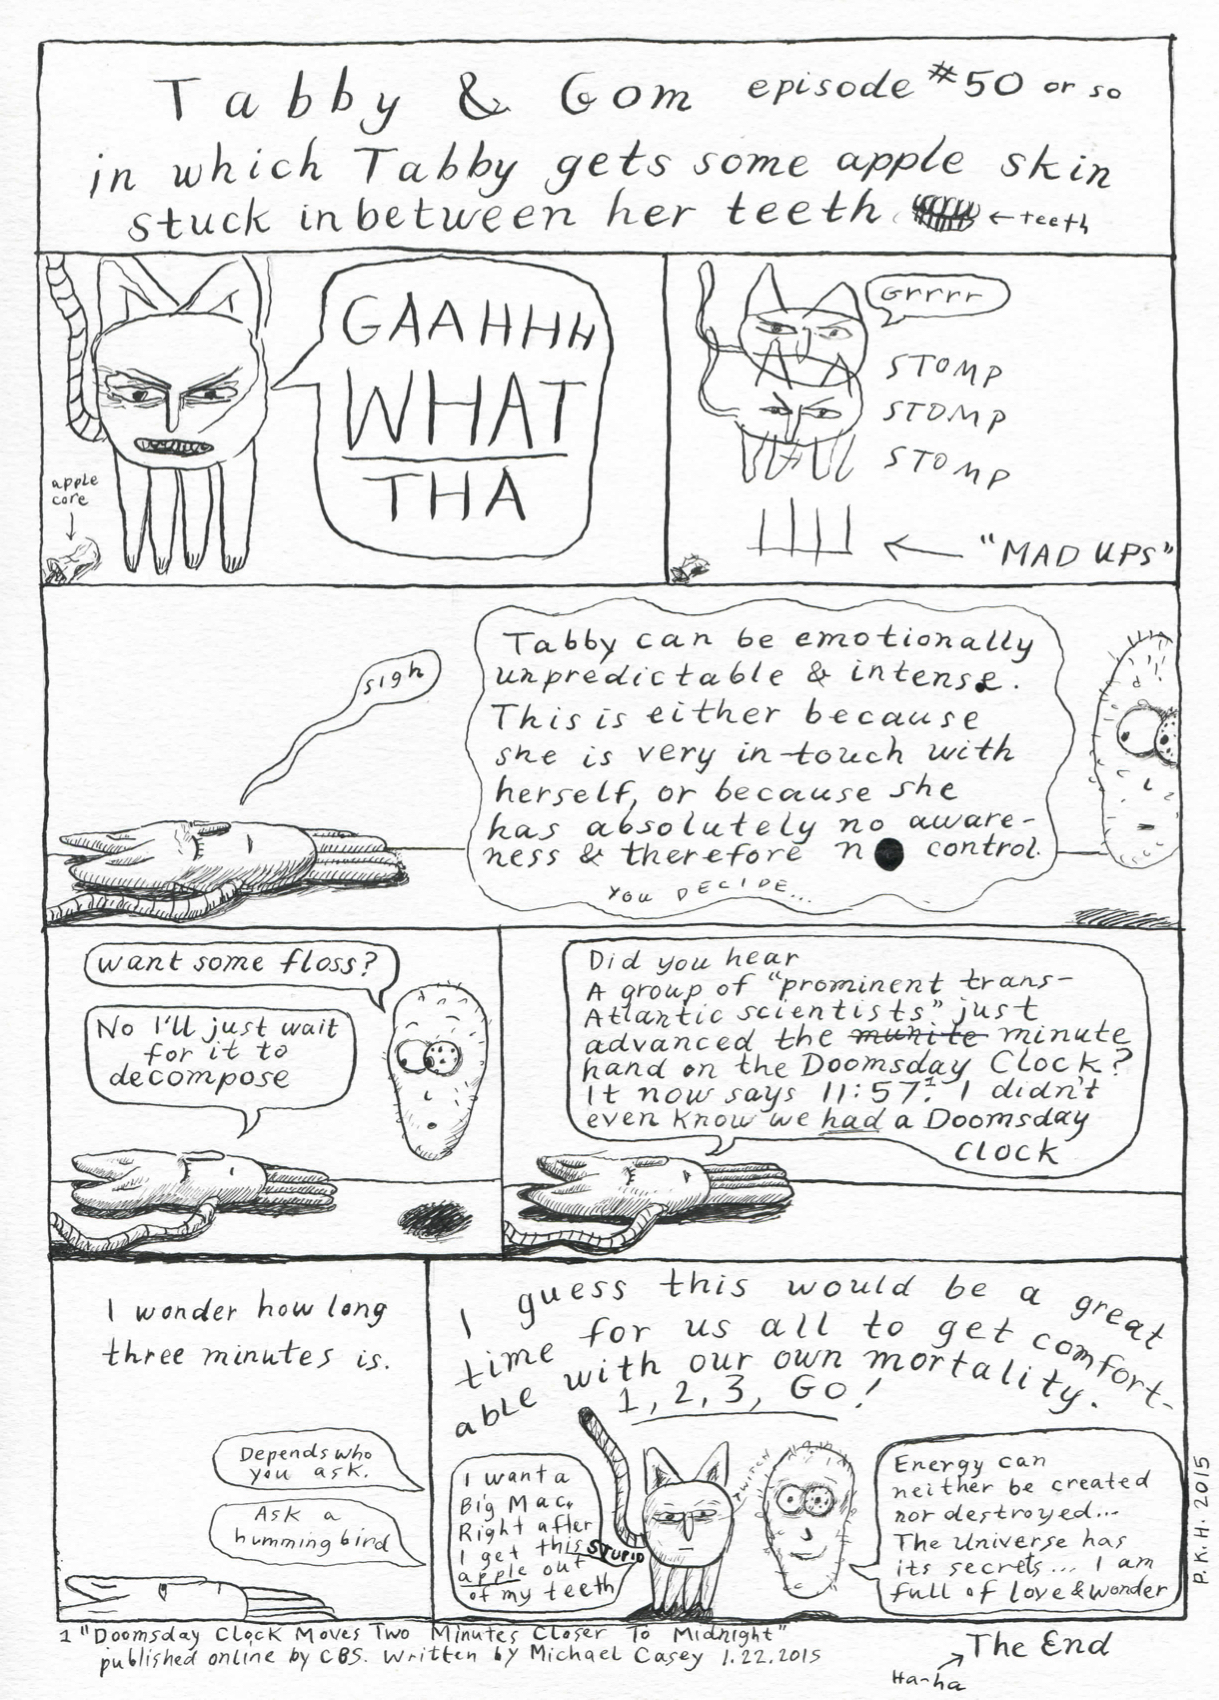 Tabby & Gom episode #50 or so
in which Tabby gets some apple skin
stuck inbetween her teeth ← teeth
GAAHHH
WHAT
THA
apple
core
Grrrr
STOMP
STOMP
STOMP
"MAD UPS"
sigh
Tabby can be emotionally
unpredictable & intense.
This is either because
she is very in-touch with
herself, or because she
has absolutely no aware-
ness & therefore no control.
YOU DECIDE...
want some floss?
No I'll just wait
for it to
decompose
Did you hear
A group of "prominent trans-
Atlantic scientists" just
advanced the munite minute
hand on the Doomsday Clock?
It now says 11:57.¹ I didn't
even know we had a Doomsday
Clock
I wonder how long
three minutes is.
Depends who
you ask.
Ask a
hummingbird
I guess this would be a great
time for us all to get comfort-
able with our own mortality.
1, 2, 3, GO!
I want a
Big Mac.
Right after
I get this STUPID
apple out
of my teeth
TWITCH
Energy can
neither be created
nor destroyed...
The Universe has
its secrets... I am
full of love & wonder
P.K.H. 2015
1 "Doomsday Clock Moves Two Minutes Closer To Midnight"
published online by CBS. Written by Michael Casey 1.22.2015
The End
Ha-ha